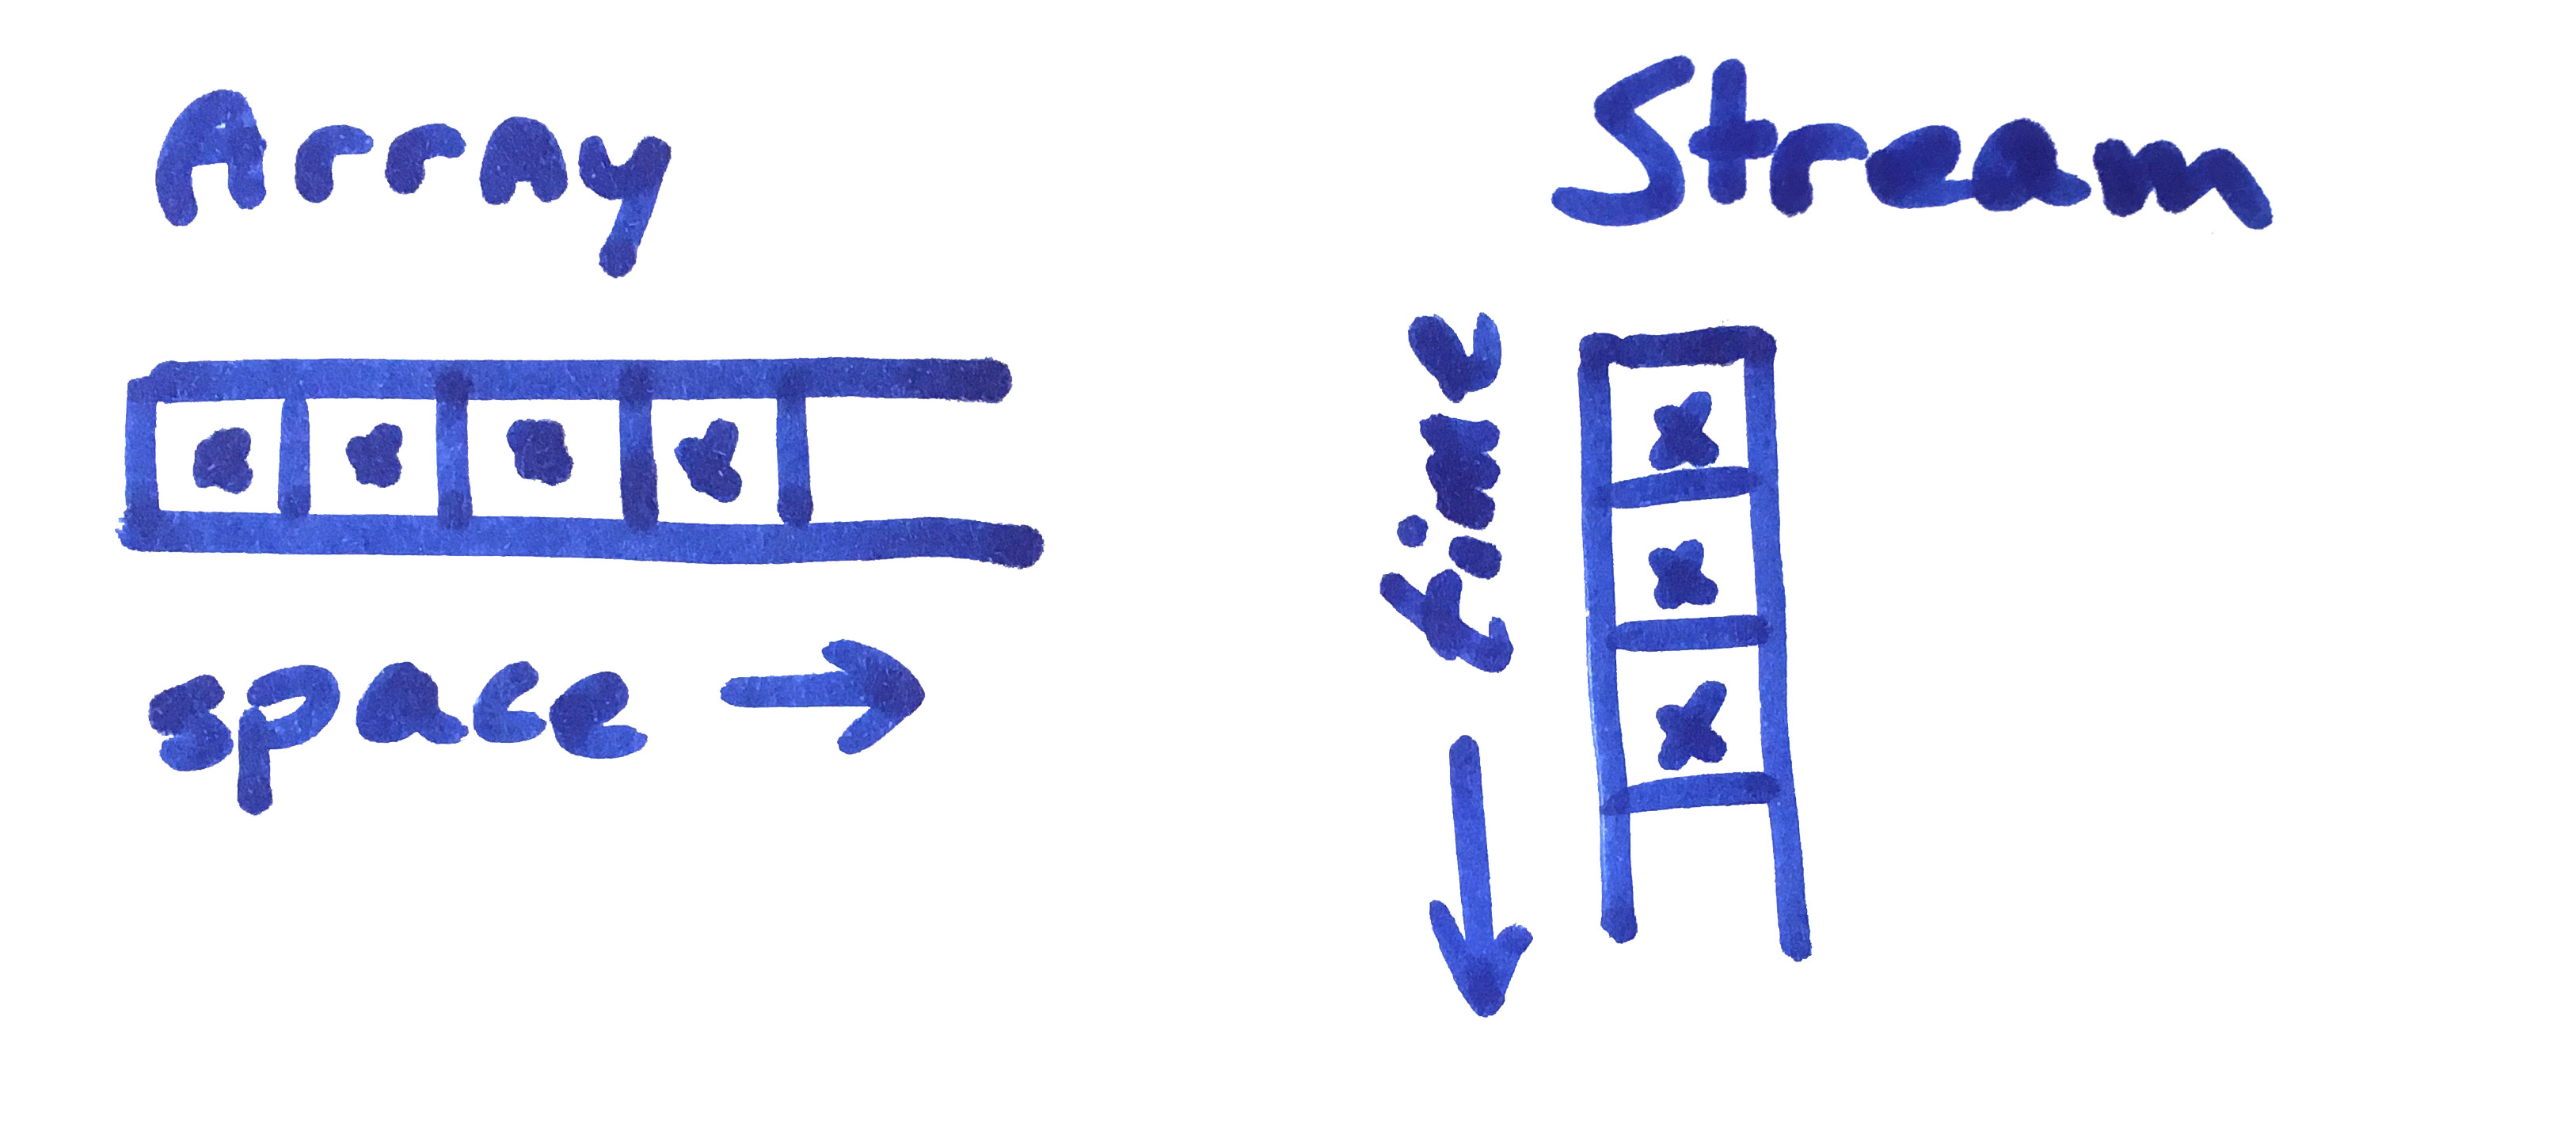 Array
space →
Stream
time →